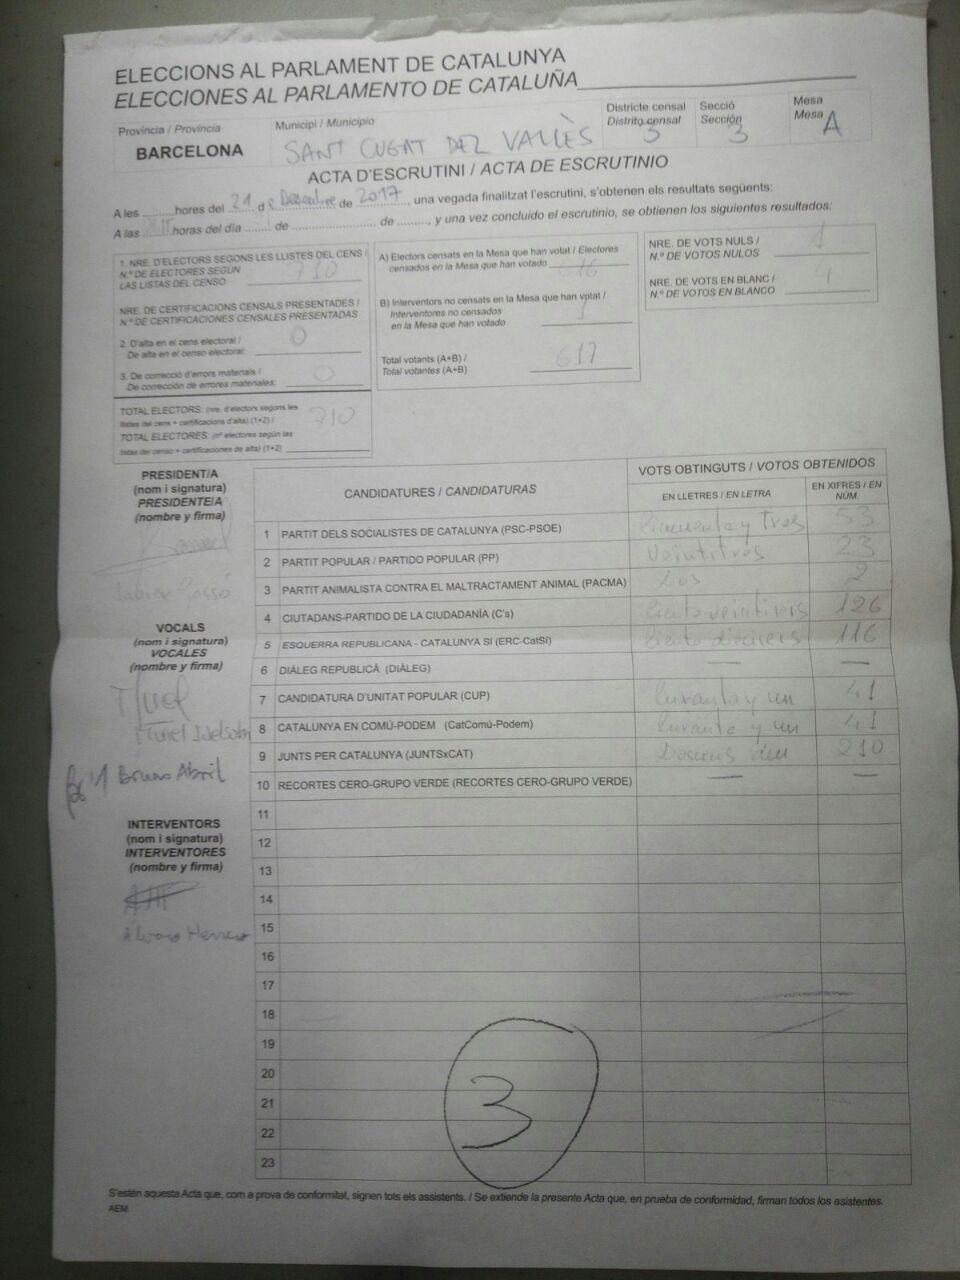 ELECCIONS AL PARLAMENT DE CATALUNYA
ELECCIONES AL PARLAMENTO DE CATALUÑA
Província / Provincia
BARCELONA
Municipi / Municipio
SANT CUGAT DEL VALLÈS
Districte censal
Distrito censal
3
Secció
Sección
3
Mesa
Mesa
A
ACTA D'ESCRUTINI / ACTA DE ESCRUTINIO
A les ........ hores del 21 d e Desembre de 2017, una vegada finalitzat l'escrutini, s'obtenen els resultats següents:
A las ........ horas del día ........ de ........ de ........, y una vez concluido el escrutinio, se obtienen los siguientes resultados:
1. NRE. D'ELECTORS SEGONS LES LLISTES DEL CENS /
N.º DE ELECTORES SEGÚN
LAS LISTAS DEL CENSO
710
NRE. DE CERTIFICACIONS CENSALS PRESENTADES /
N.º DE CERTIFICACIONES CENSALES PRESENTADAS
2. D'alta en el cens electoral /
De alta en el censo electoral:
0
3. De correcció d'errors materials /
De corrección de errores materiales:
0
TOTAL ELECTORS: (nre. d'electors segons les
llistes del cens + certificacions d'alta) (1+2) /
TOTAL ELECTORES: (nº electores según las
listas del censo + certificaciones de alta) (1+2)
710
A) Electors censats en la Mesa que han votat / Electores
censados en la Mesa que han votado
616
B) Interventors no censats en la Mesa que han votat /
Interventores no censados
en la Mesa que han votado
1
Total votants (A+B) /
Total votantes (A+B)
617
NRE. DE VOTS NULS /
N.º DE VOTOS NULOS
1
NRE. DE VOTS EN BLANC /
N.º DE VOTOS EN BLANCO
4
PRESIDENT/A
(nom i signatura)
PRESIDENTE/A
(nombre y firma)
VOCALS
(nom i signatura)
VOCALES
(nombre y firma)
Bruno Abril
INTERVENTORS
(nom i signatura)
INTERVENTORES
(nombre y firma)
Álvaro Herrero
CANDIDATURES / CANDIDATURAS
VOTS OBTINGUTS / VOTOS OBTENIDOS
EN LLETRES / EN LETRA
EN XIFRES / EN NÚM.
1 PARTIT DELS SOCIALISTES DE CATALUNYA (PSC-PSOE) Cincuenta y Tres 53
2 PARTIT POPULAR / PARTIDO POPULAR (PP) Veintitres 23
3 PARTIT ANIMALISTA CONTRA EL MALTRACTAMENT ANIMAL (PACMA) Dos 2
4 CIUTADANS-PARTIDO DE LA CIUDADANÍA (C's) Ciento veintiseis 126
5 ESQUERRA REPUBLICANA - CATALUNYA SI (ERC-CatSI) Ciento dieciseis 116
6 DIÀLEG REPUBLICÀ (DIÀLEG) — —
7 CANDIDATURA D'UNITAT POPULAR (CUP) 41
8 CATALUNYA EN COMÚ-PODEM (CatComú-Podem) 41
9 JUNTS PER CATALUNYA (JUNTSxCAT) 210
10 RECORTES CERO-GRUPO VERDE (RECORTES CERO-GRUPO VERDE) — —
11
12
13
14
15
16
17
18
19
20
21
22
23
3
S'estén aquesta Acta que, com a prova de conformitat, signen tots els assistents. / Se extiende la presente Acta que, en prueba de conformidad, firman todos los asistentes.
AEM